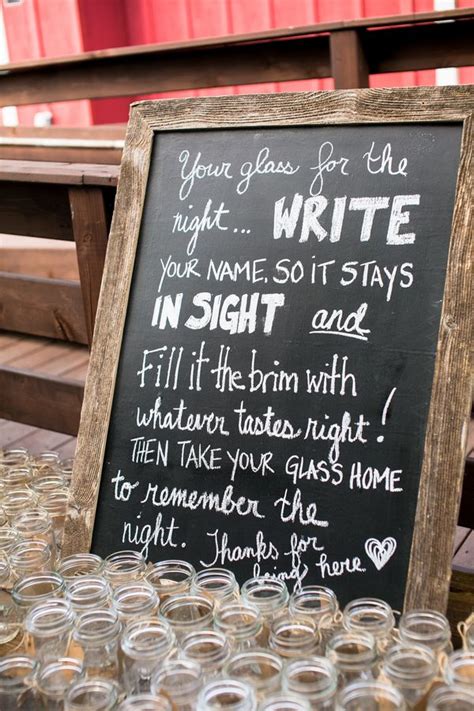 Your glass for the
night... WRITE
YOUR NAME, SO IT STAYS
IN SIGHT and
Fill it the brim with
whatever tastes right!
THEN TAKE YOUR GLASS HOME
to remember the
night. Thanks for
being here